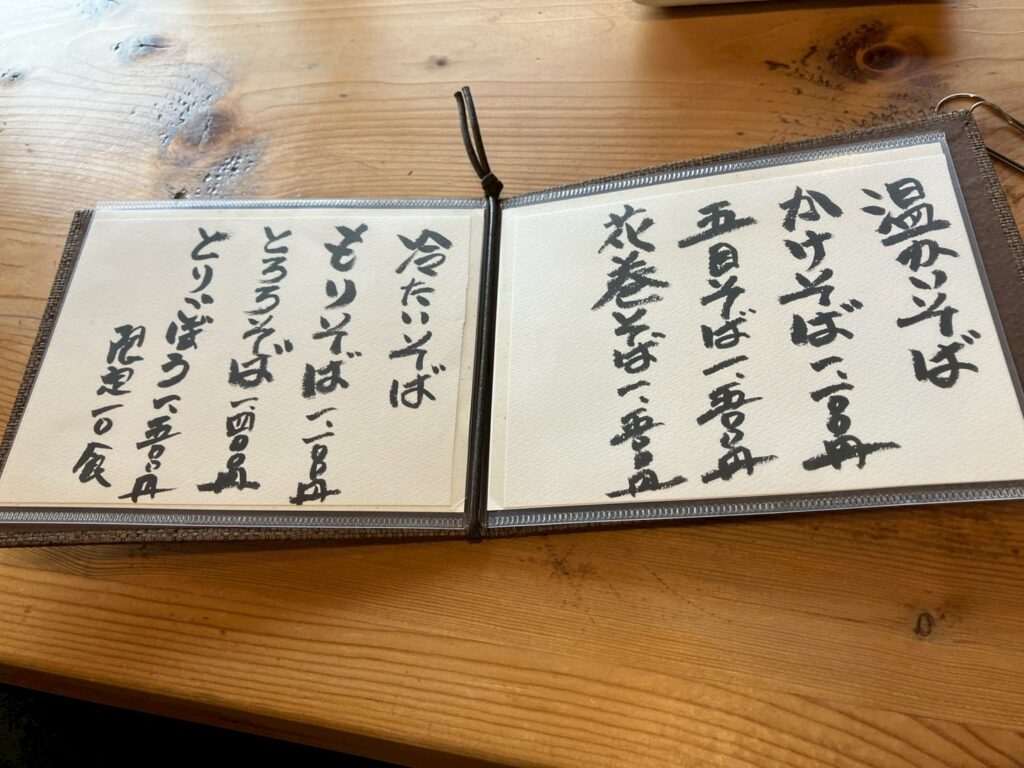 温かいそば
かけそば 一、一〇〇円
五目そば 一、五〇〇円
花巻そば 一、五〇〇円
冷たいそば
もりそば 一、一〇〇円
とろろそば 一、四〇〇円
とりごぼう 一、五〇〇円
限定 一〇食